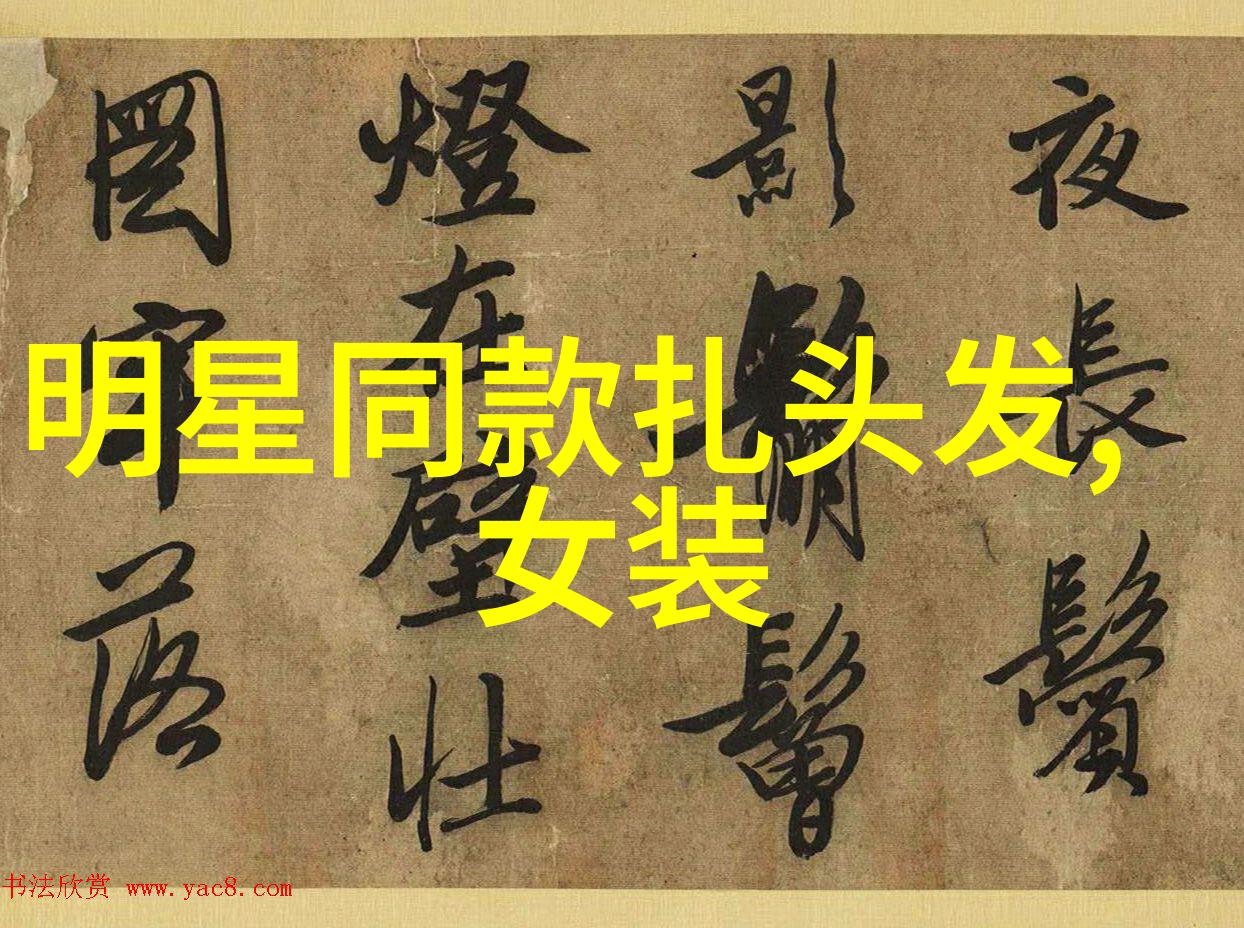 夜長鬢
影
燈在壁壮
落
明星同款扎头发,
女装
书法欣赏 www.yac8.com